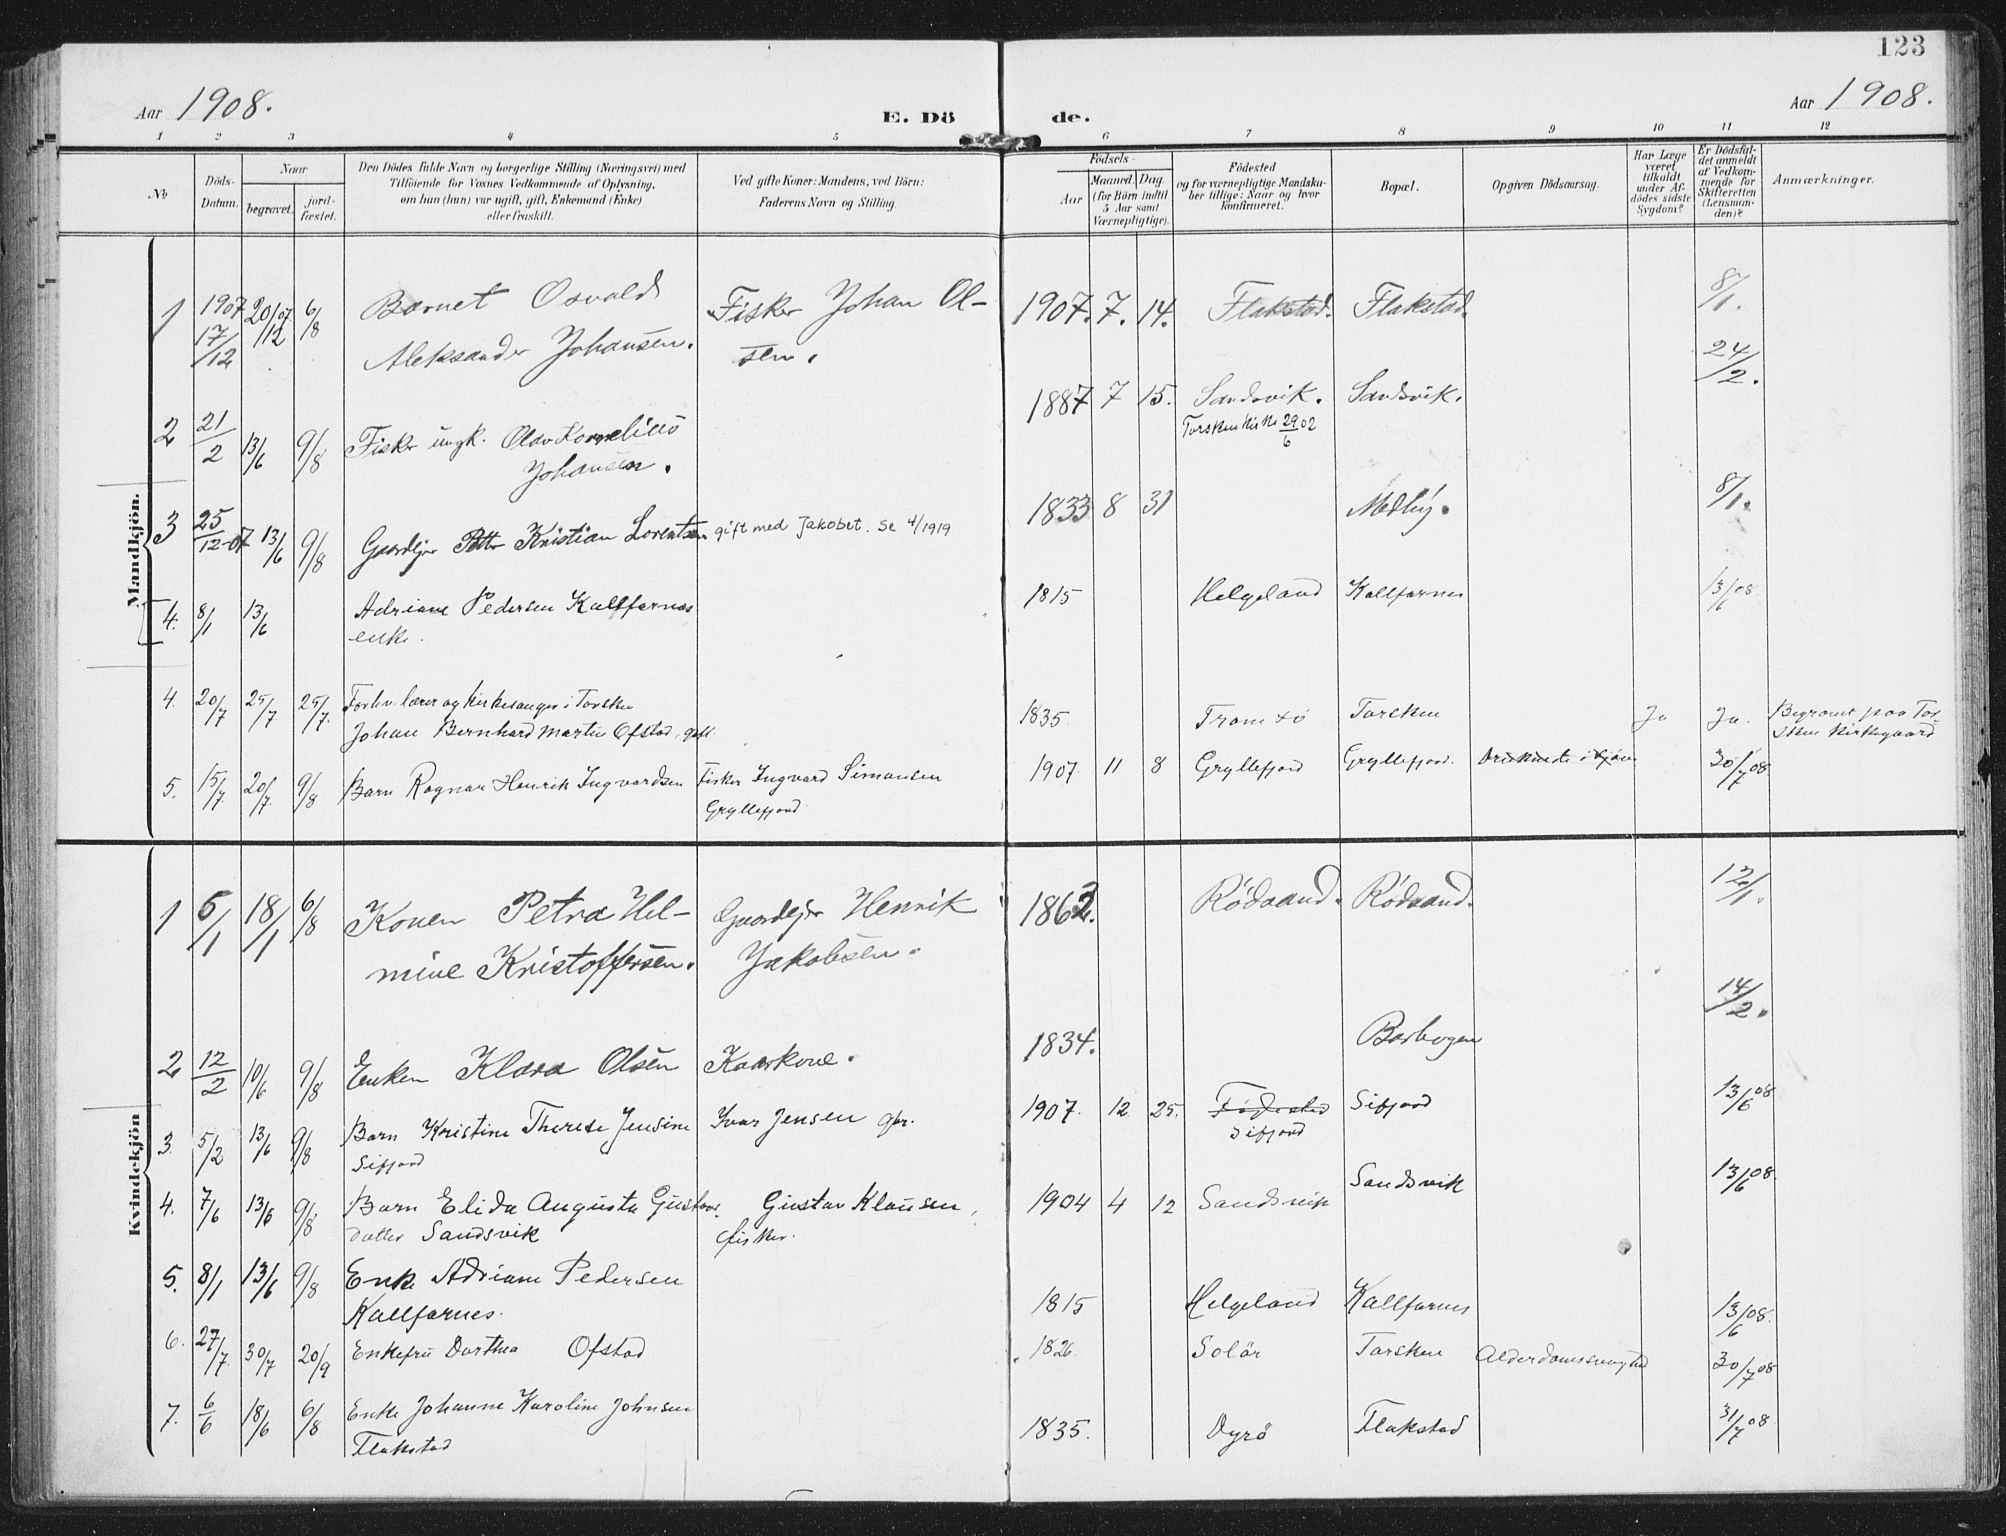 123
Aar 1908.
E. Dö de.
Aar 1908.
1 2 3 4 5 6 7 8 9 10 11 12
No
Döds-Datum.
Naar
begravet.
jord-fæstet.
Den Dödes fulde Navn og borgerlige Stilling (Næringsvei) med
Tilföiende for Voxnes Vedkommende af Oplysning,
om han (hun) var ugift, gift, Enkemand (Enke)
eller fraskilt.
Ved gifte Koner: Mandens, ved Börn:
Faderens Navn og Stilling.
Födsels-
Aar
Maaned. Dag
(for Börn indtil
5 Aar samt
Værnepligtige).
Födested
og for værnepligtige Mandska-
ber tillige: Naar og hvor
konfirmeret.
Bopæl.
Opgiven Dödsaarsag.
Har Læge
været
tilkaldt
under Af-
dödes sidste
Sygdom?
Er Dödsfal-
det anmeldt
af Vedkom-
mende for
Skifteretten
(Lensman-
den)?
Anmærkninger.
Mandkjön.
1 1907 17/12 20/12 07 6/8 Barnet Osvald Fisker Johan Ol- 1907. 7. 14. Flakstad. Flakstad. 8/1.
Aleksander Johansen. sen.
2 21/2 13/6 9/8 Fisker ungk. Olav Kornelius 1887 7 15. Sandsvik. Sandsvik. 24/2.
Johansen. Torsken Kirke 29/6 02
3 25/12-07 13/6 9/8 Gaardejer Petter Kristian Lorentsen gift med Jakobet. Se 4/1919 1833 8 31 Medby. 8/1.
4. 8/1 13/6 Adriane Pedersen Kallfarnes 1815 Helgeland Kallfarnes 13/6 08
enke.
4. 20/7 25/7 25/7. Forhv. lærer og kirkesanger i Torsken
Johan Bernhard Martin Ofstad, gift. 1835. Tromsö Torsken Ja Ja. Begravet paa Tor-
sken Kirkegaard
5. 15/7. 20/7. 9/8 Barn Ragnar Henrik Ingvardsen Fisker Ingvard Simonsen 1907 11 8 Gryllefjord Gryllefjord. 30/7 08
Gryllefjord
Kvindekjön
1 6/1 18/1 6/8 Konen Petra Hel- Gaardejer Henrik 1862. Rödsand. Rödsand. 12/1.
mine Kristoffersen. Jakobsen.
2 12/2 10/6 9/8 Enken Klara Olsen Kaarkone. 1834. 14/2.
3. 5/2 13/6 9/8 Barn Kristine Therese Jensine Ivar Jensen gbr. 1907. 12 25. Födested Sifjord 13/6 08
Sifjord Sifjord
4. 7/6 13/6 9/8 Barn Elida Augusta Gustav- Gustav Klausen, 1904 4 12 Sandsvik Sandsvik 13/6 08
datter Sandsvik fisker.
5. 8/1 13/6 9/8 Enke Adriane Pedersen 1815 Helgeland Kallfarnes 13/6 08.
Kallfarnes.
6. 27/7. 30/7 20/9 Enkefru Dorthea Ofstad 1826. Solör Torsken Alderdomssvaghed 30/7 08
7. 6/6 18/6 6/8 Enke Johanne Karoline Johnsen 1835. Dyrö Flakstad 31/7 08
Flakstad